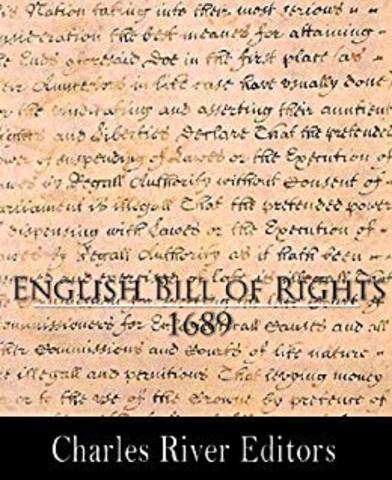 is Nation taking into their most serious
nsideration the best meanes for attaining
he Ends aforesaid Doe in the first place (as
eir Auncestors in like case have usually done
or the vindicating and asserting their auntient
ights and Liberties Declare That the pretended
ower of suspending of Lawes or the Execution of
awes by Regall Authority without Consent of
arliament is illegall That the pretended power
dispensing with Lawes or the Execution of
awes by Regall Authority as it hath been
illegall That
ENGLISH BILL OF RIGHTS
1689
ommissioners for Causes and all
ther Commissions and Courts of like nature
re illegall and pernitious That levying money
or to the use of the Crowne by pretence of
Charles River Editors